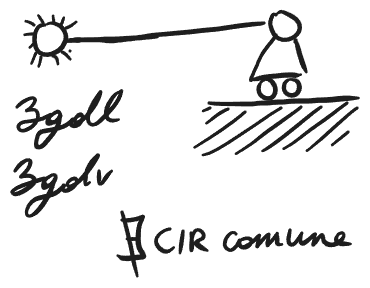 3gdl
3gdv
∄ CIR comune